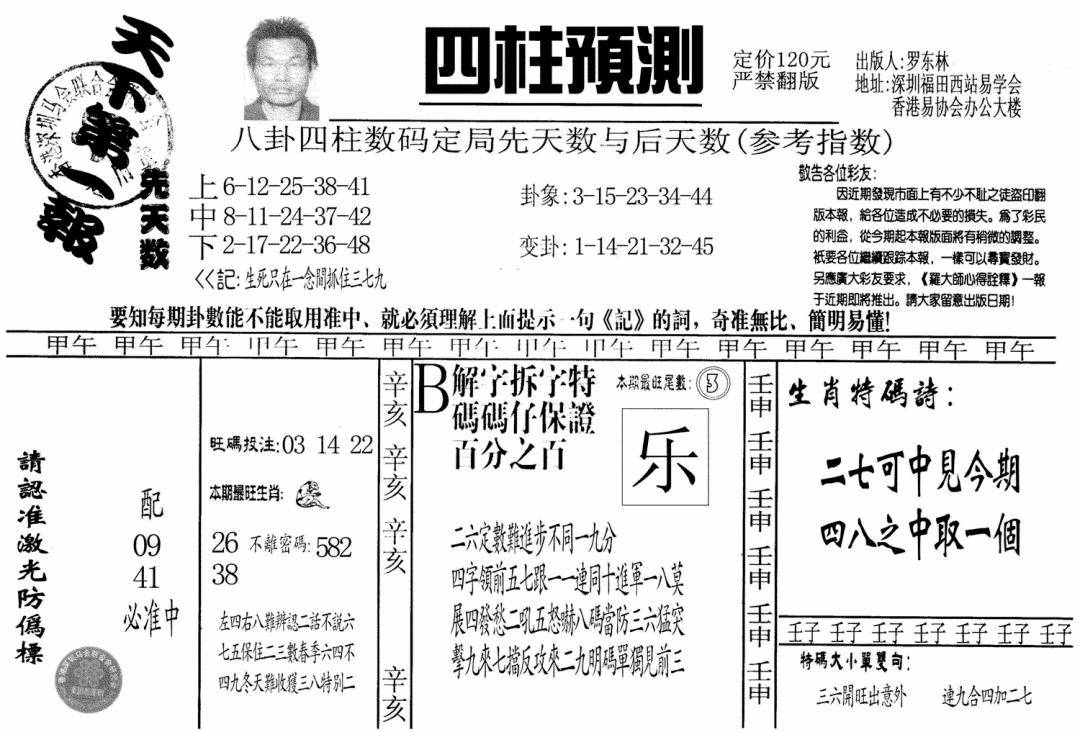 天下第一報
四柱預測
定价120元
严禁翻版
出版人:罗东林
地址:深圳福田西站易学会
香港易协会办公大楼
八卦四柱数码定局先天数与后天数(参考指数)
先天数
上 6-12-25-38-41
中 8-11-24-37-42
下 2-17-22-36-48
<<記:生死只在一念間抓住三七九
卦象:3-15-23-34-44
变卦:1-14-21-32-45
敬告各位彩友:
因近期發現市面上有不少不耻之徒盜印翻
版本報,給各位造成不必要的損失。爲了彩民
的利益,從今期起本報版面將有稍微的調整。
祇要各位繼續跟踪本報,一樣可以尋寶發財。
另應廣大彩友要求,《羅大師心得詮釋》一報
于近期即將推出。請大家留意出版日期!
要知每期卦數能不能取用准中、就必須理解上面提示一句《記》的詞,奇准無比、簡明易懂!
甲午 甲午 甲午 甲午 甲午 甲午 甲午 甲午 甲午 甲午 甲午 甲午 甲午 甲午 甲午
請認准激光防僞標
配
09
41
必准中
旺碼投注:03 14 22
本期最旺生肖:
26 不離密碼:582
38
左四右八難辨認二話不說六
七五保住二三數春季六四不
四九冬天難收獲三八特別二
辛亥 辛亥 辛亥 辛亥
B 解字拆字特
碼碼仔保證
百分之百
本期最旺尾數:3
乐
二六定數難進步不同一九分
四字領前五七跟一一連同十進軍一八莫
展四發愁二吼五怒嚇八碼當防三六猛突
擊九來七擋反攻來二九明碼單獨見前三
壬申 壬申 壬申 壬申 壬申 壬申
生肖特碼詩:
二七可中見今期
四八之中取一個
壬子 壬子 壬子 壬子 壬子 壬子 壬子
特碼大小單雙句:
三六開旺出意外 連九合四加二七